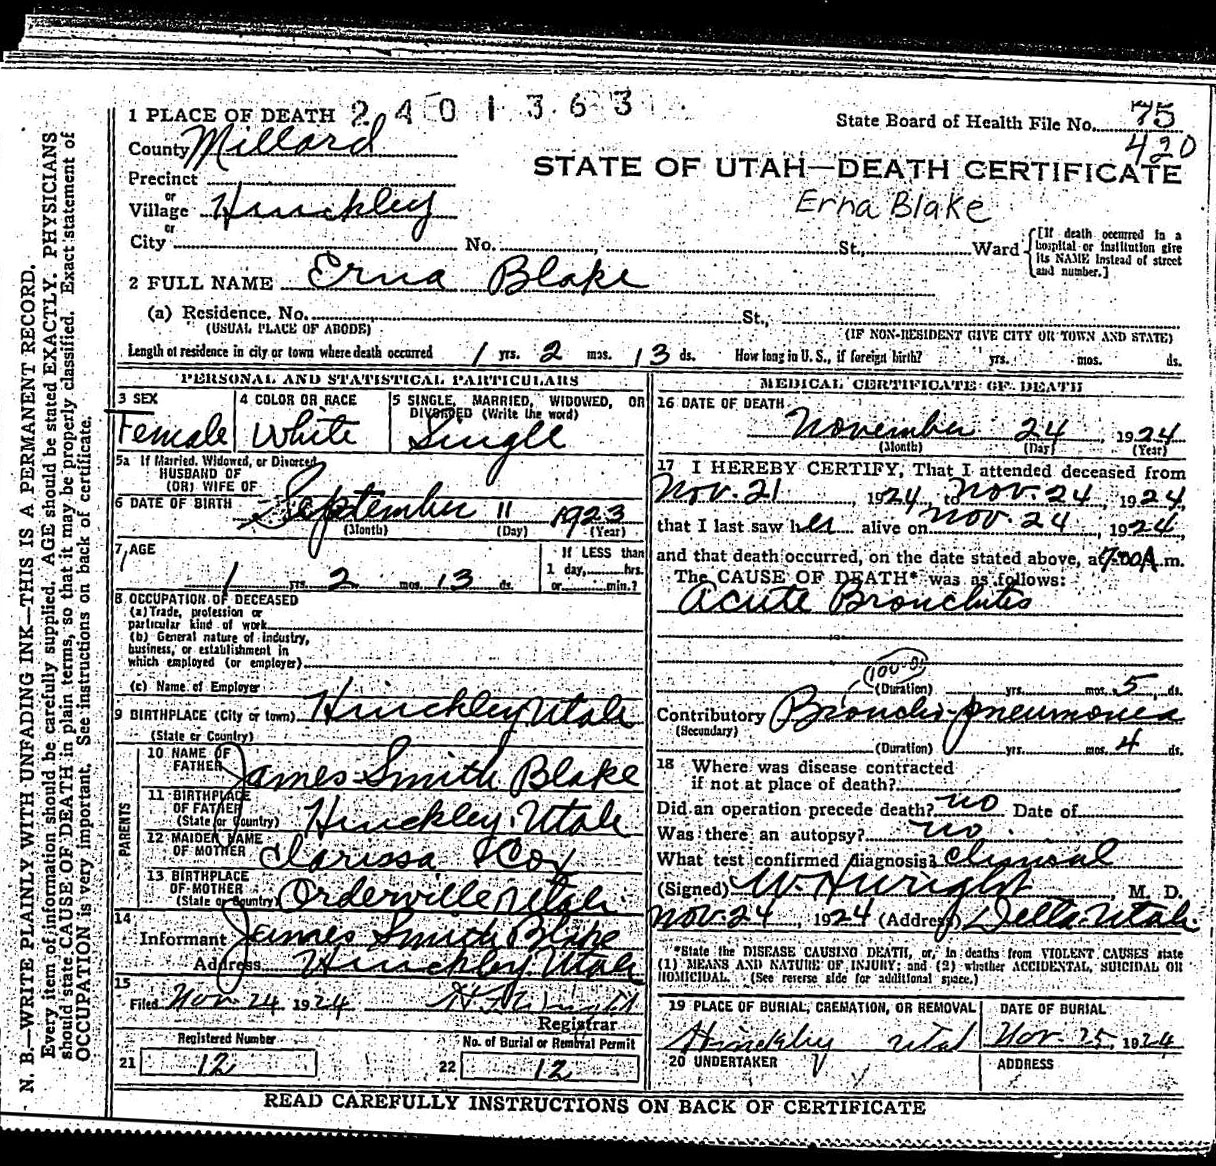 2401363
1 PLACE OF DEATH
State Board of Health File No. 75
420
County Millard
STATE OF UTAH—DEATH CERTIFICATE
Precinct
or
Village Hinckley
Erna Blake
or
City No. St., Ward
[If death occurred in a hospital or institution give its NAME instead of street and number.]
2 FULL NAME Erna Blake
(a) Residence. No. St.,
(USUAL PLACE OF ABODE) (IF NON-RESIDENT GIVE CITY OR TOWN AND STATE)
Length of residence in city or town where death occurred 1 yrs. 2 mos. 13 ds. How long in U. S., if foreign birth? yrs. mos. ds.
PERSONAL AND STATISTICAL PARTICULARS
3 SEX
Female
4 COLOR OR RACE
White
5 SINGLE, MARRIED, WIDOWED, OR
DIVORCED (Write the word)
Single
5a If Married, Widowed, or Divorced
HUSBAND OF
(OR) WIFE OF
6 DATE OF BIRTH September 11 1923
(Month) (Day) (Year)
7 AGE
1 yrs. 2 mos. 13 ds.
If LESS than
1 day, hrs.
or min.?
8 OCCUPATION OF DECEASED
(a) Trade, profession or
particular kind of work
(b) General nature of industry,
business, or establishment in
which employed (or employer)
(c) Name of Employer
9 BIRTHPLACE (City or town) Hinckley Utah
(State or Country)
PARENTS
10 NAME OF
FATHER James Smith Blake
11 BIRTHPLACE
OF FATHER
(State or Country) Hinckley, Utah
12 MAIDEN NAME
OF MOTHER Clarissa Cox
13 BIRTHPLACE
OF MOTHER
(State or Country) Orderville Utah
14
Informant James Smith Blake
Address Hinckley, Utah
15
Filed Nov 24 1924
Registrar
Registered Number
21 12
No. of Burial or Removal Permit
22 12
MEDICAL CERTIFICATE OF DEATH
16 DATE OF DEATH
November 24, 1924
(Month) (Day) (Year)
17 I HEREBY CERTIFY, That I attended deceased from
Nov. 21, 1924, to Nov. 24, 1924,
that I last saw her alive on Nov. 24, 1924,
and that death occurred, on the date stated above, at 7:00 A.m.
The CAUSE OF DEATH* was as follows:
Acute Bronchitis
(Duration) yrs. mos. 5 ds.
Contributory Broncho-pneumonia
(Secondary)
(Duration) yrs. mos. 4 ds.
18 Where was disease contracted
if not at place of death?
Did an operation precede death? no Date of
Was there an autopsy? no
What test confirmed diagnosis? clinical
(Signed) W H Wright, M. D.
Nov. 24, 1924 (Address) Delta Utah.
*State the DISEASE CAUSING DEATH, or, in deaths from VIOLENT CAUSES state
(1) MEANS AND NATURE OF INJURY; and (2) whether ACCIDENTAL, SUICIDAL OR
HOMICIDAL. (See reverse side for additional space.)
19 PLACE OF BURIAL, CREMATION, OR REMOVAL
Hinckley Utah
DATE OF BURIAL
Nov. 25, 1924
20 UNDERTAKER
ADDRESS
READ CAREFULLY INSTRUCTIONS ON BACK OF CERTIFICATE
N. B.—WRITE PLAINLY WITH UNFADING INK—THIS IS A PERMANENT RECORD.
Every item of information should be carefully supplied. AGE should be stated EXACTLY. PHYSICIANS
should state CAUSE OF DEATH in plain terms, so that it may be properly classified. Exact statement of
OCCUPATION is very important. See instructions on back of certificate.